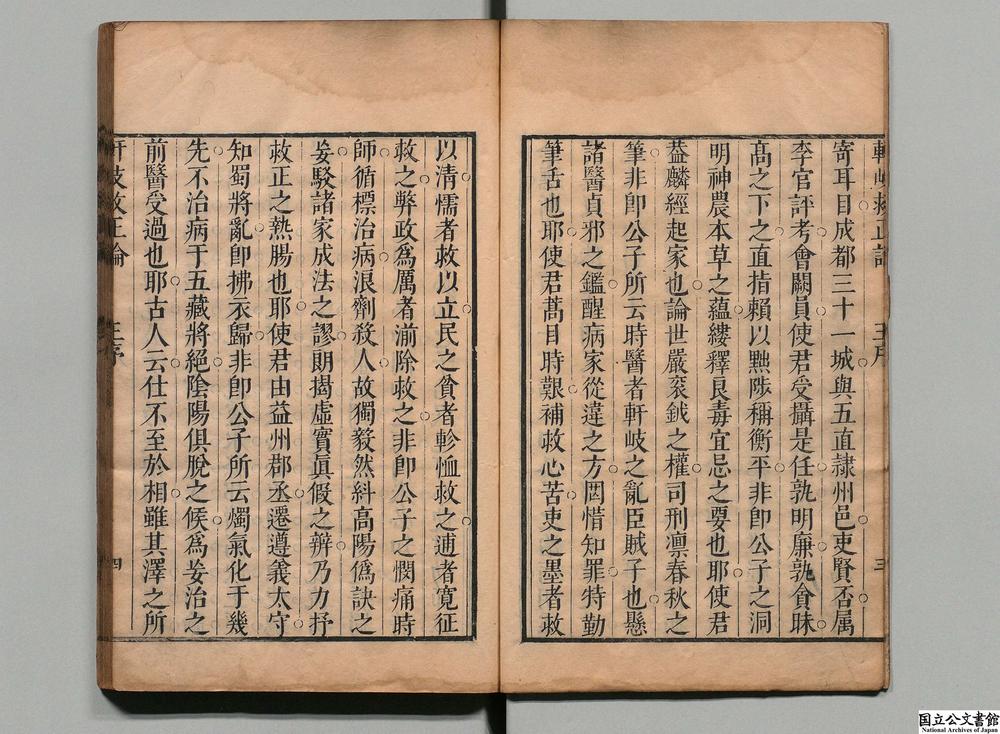 寄耳目成都三十一城與五直隷州邑吏賢否属
李官評考會闕員使君受攝是任孰明廉孰貪昧
高之下之直指賴以黜陟稱衡平非卽公子之洞
明神農本草之蘊縷釋良毒宜忌之要也耶使君
葢麟經起家也論世嚴衮鉞之權司刑凛春秋之
筆非卽公子所云時醫者軒岐之亂臣賊子也懸
諸醫貞邪之鑑醒病家從違之方罔惜知罪特勤
筆舌也耶使君蒿目時艱補救心苦吏之墨者救
以清懦者救以立民之貧者軫恤救之逋者寛征
救之弊政爲厲者湔除救之非卽公子之憫痛時
師循標治病浪劑殺人故獨毅然糾高陽僞訣之
妄駁諸家成法之謬朗揭虛實眞假之辨乃力抒
救正之熱腸也耶使君由益州郡丞遷遵義太守
知蜀將亂卽拂衣歸非卽公子所云燭氣化于幾
先不治病于五藏將絕陰陽俱脫之候爲妄治之
前醫受過也耶古人云仕不至於相雖其澤之所
軒岐救正論 王序 四